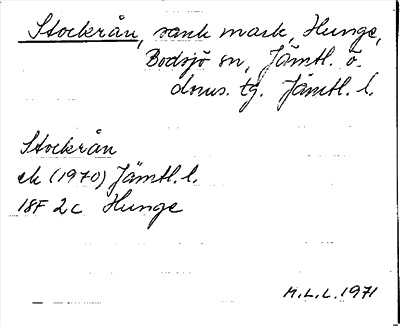 Stockrån, sank mark, Hunge,
Bodsjö sn, Jämtl. ö.
doms. tg. Jämtl. l.
Stockrån
ek (1970) Jämtl. l.
18F 2c Hunge
M.L.L. 1971